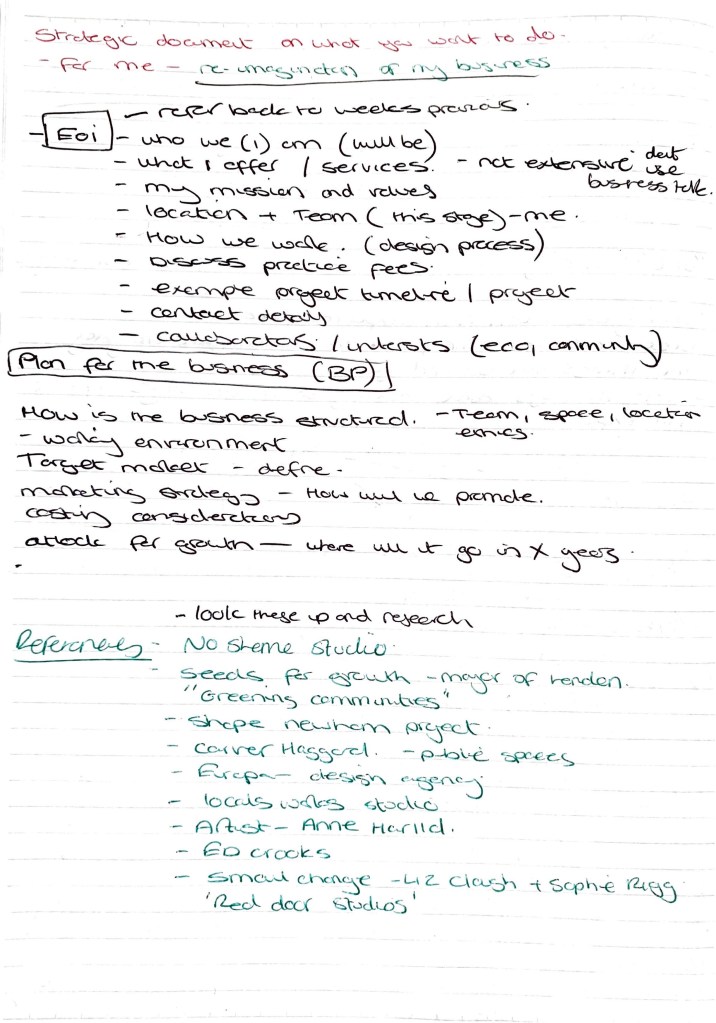 Strategic document on what you want to do.
- For me - re-imagination of my business
- refer back to weeks previous.
- EOI - who we (I) am (will be)
- what I offer / services. - not extensive dont use business talk.
- my mission and values
- location + Team (this stage) - me.
- How we work. (design process)
- Discuss practice fees.
- example project timeline / project
- contact details
- collaborators / interests (eco, community)
Plan for the business (BP)
How is the business structured. - Team, space, location
ethics.
- working environment
Target market - define.
marketing strategy - How will we promote.
costing considerations
outlook for growth - where will it go in X years.
- look these up and research
References - No sheme studio.
- seeds for growth - mayor of london.
"Greening communities"
- shape newham project.
- Carver Haggard. - public spaces
- Europa - design agency
- locals works studio
- Artist - Anne Harild.
- ED crooks
- Small change - Liz Clough + Sophie Rigg.
'Red door studios'